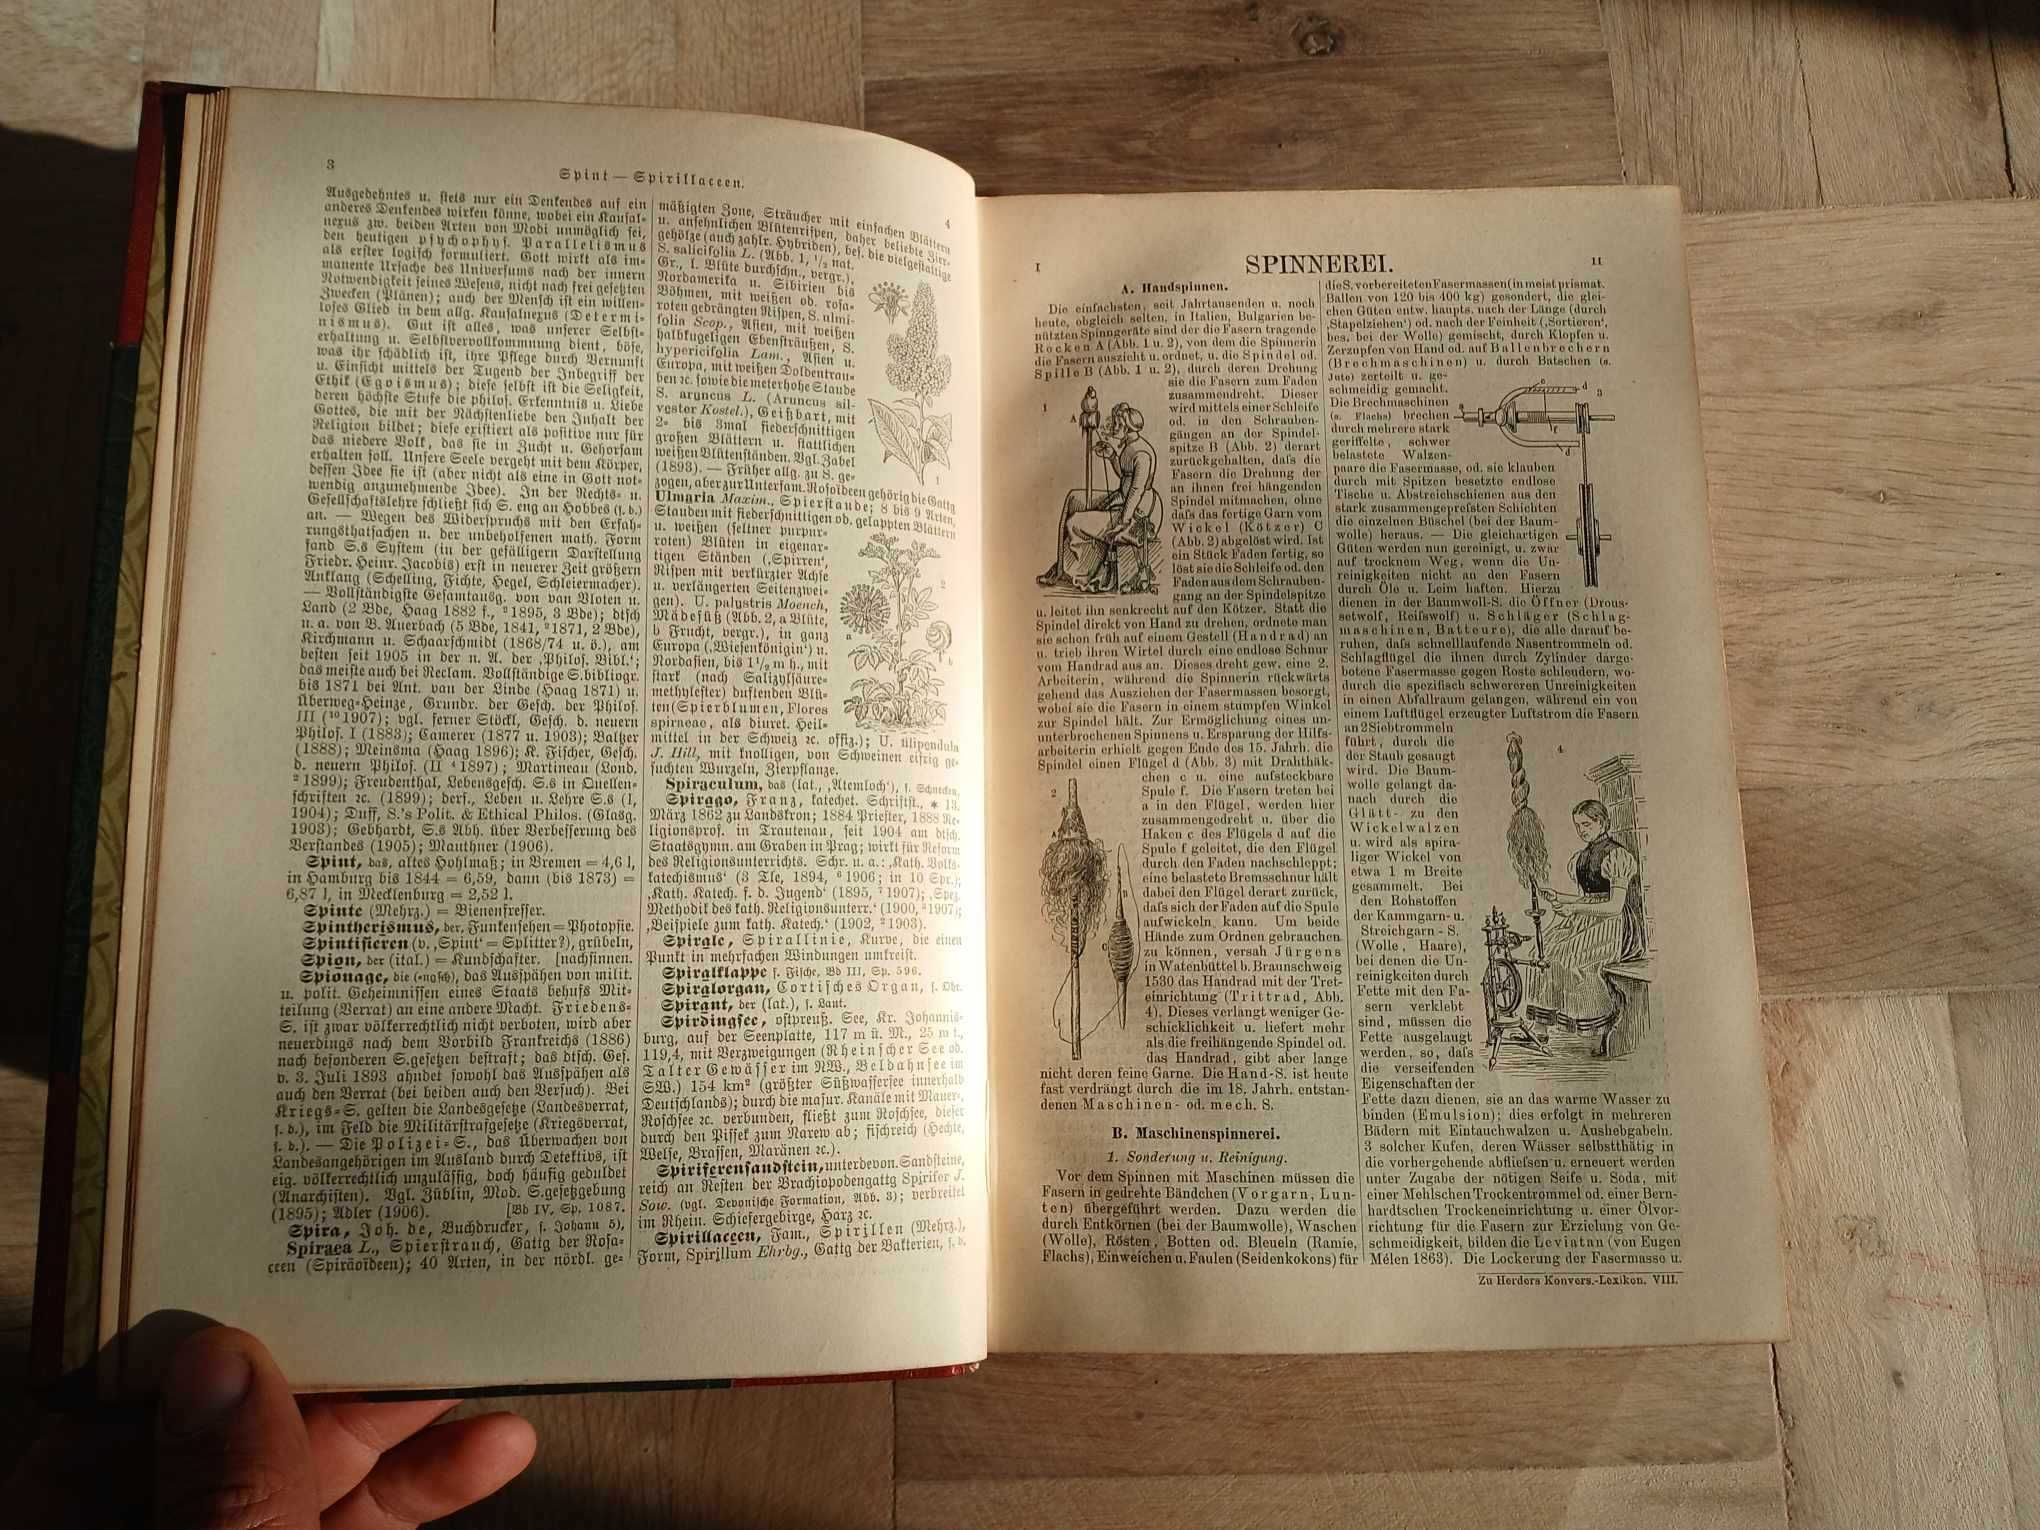 3
Spint — Spirillaceen.
4
Ausgedehntes u. stets nur ein Denkendes auf ein
anderes Denkendes wirken könne, wobei ein Kausal-
nexus zw. beiden Arten von Modi unmöglich sei,
den heutigen psychophys. Parallelismus
als erster logisch formuliert. Gott wirkt als im-
manente Ursache des Universums nach der innern
Notwendigkeit seines Wesens, nicht nach frei gesetzten
Zwecken (Plänen); auch der Mensch ist ein willen-
loses Glied in dem allg. Kausalnexus (Determi-
nismus). Gut ist alles, was unserer Selbst-
erhaltung u. Selbstvervollkommnung dient, böse,
was ihr schädlich ist, ihre Pflege durch Vernunft
u. Einsicht mittels der Tugend der Inbegriff der
Ethik (Egoismus); diese selbst ist die Seligkeit,
deren höchste Stufe die philos. Erkenntnis u. Liebe
Gottes, die mit der Nächstenliebe den Inhalt der
Religion bildet; diese existiert als positive nur für
das niedere Volk, das sie in Zucht u. Gehorsam
erhalten soll. Unsere Seele vergeht mit dem Körper,
dessen Idee sie ist (aber nicht als eine in Gott not-
wendig anzunehmende Idee). In der Rechts- u.
Gesellschaftslehre schließt sich S. eng an Hobbes (s. d.)
an. — Wegen des Widerspruchs mit den Erfah-
rungsthatsachen u. der unbeholfenen math. Form
fand S.s System (in der gefälligern Darstellung
Friedr. Heinr. Jacobis) erst in neuerer Zeit größern
Anklang (Schelling, Fichte, Hegel, Schleiermacher).
— Vollständigste Gesamtausg. von van Vloten u.
Land (2 Bde, Haag 1882 f., ²1895, 3 Bde); dtsch
u. a. von B. Auerbach (5 Bde, 1841, ²1871, 2 Bde),
Kirchmann u. Schaarschmidt (1868/74 u. ö.), am
besten seit 1905 in der n. A. der ‚Philos. Bibl.‘;
das meiste auch bei Reclam. Vollständige S.bibliogr.
bis 1871 bei Ant. van der Linde (Haag 1871) u.
Überweg-Heinze, Grundr. der Gesch. der Philos.
III (¹⁰1907); vgl. ferner Stöckl, Gesch. d. neuern
Philos. I (1883); Camerer (1877 u. 1903); Baltzer
(1888); Meinsma (Haag 1896); K. Fischer, Gesch.
d. neuern Philos. (II ⁴1897); Martineau (Lond.
²1899); Freudenthal, Lebensgesch. S.s in Quellen-
schriften ꝛc. (1899); ders., Leben u. Lehre S.s (I,
1904); Duff, S.'s Polit. & Ethical Philos. (Glasg.
1903); Gebhardt, S.s Abh. über Verbesserung des
Verstandes (1905); Mauthner (1906).
Spint, das, altes Hohlmaß; in Bremen = 4,6 l,
in Hamburg bis 1844 = 6,59, dann (bis 1873) =
6,87 l, in Mecklenburg = 2,52 l.
Spinte (Mehrz.) = Bienenfresser.
Spintherismus, der, Funkensehen = Photopsie.
Spintisieren (v. ‚Spint‘ = Splitter?), grübeln,
Spion, der (ital.) = Kundschafter. [nachsinnen.
Spionage, die (-nasch), das Ausspähen von milit.
u. polit. Geheimnissen eines Staats behufs Mit-
teilung (Verrat) an eine andere Macht. Friedens-
S. ist zwar völkerrechtlich nicht verboten, wird aber
neuerdings nach dem Vorbild Frankreichs (1886)
nach besonderen S.gesetzen bestraft; das dtsch. Ges.
v. 3. Juli 1893 ahndet sowohl das Ausspähen als
auch den Verrat (bei beiden auch den Versuch). Bei
Kriegs-S. gelten die Landesgesetze (Landesverrat,
s. d.), im Feld die Militärstrafgesetze (Kriegsverrat,
s. d.). — Die Polizei-S., das Überwachen von
Landesangehörigen im Ausland durch Detektivs, ist
eig. völkerrechtlich unzulässig, doch häufig geduldet
(Anarchisten). Vgl. Züblin, Mod. S.gesetzgebung
(1895); Adler (1906). [Bd IV, Sp. 1087.
Spira, Joh. de, Buchdrucker, s. Johann 5),
Spiraea L., Spierstrauch, Gattg der Rosa-
ceen (Spiräoideen); 40 Arten, in der nördl. ge-
mäßigten Zone, Sträucher mit einfachen Blättern
u. ansehnlichen Blütenrispen, daher beliebte Zier-
gehölze (auch zahlr. Hybriden), bes. die vielgestaltige
S. salicifolia L. (Abb. 1, ½ nat.
Gr., l. Blüte durchschn., vergr.),
Nordamerika u. Sibirien bis
Böhmen, mit weißen ob. rosa-
roten gedrängten Rispen, S. ulmi-
folia Scop., Asien, mit weißen
halbkugeligen Ebensträußen, S.
hypericifolia Lam., Asien u.
Europa, mit weißen Doldentrau-
ben ꝛc. sowie die meterhohe Staude
S. aruncus L. (Aruncus sil-
vester Kostel.), Geißbart, mit
2- bis 3mal fiederschnittigen
großen Blättern u. stattlichen
weißen Blütenständen. Vgl. Zabel
(1893). — Früher allg. zu S. ge-
zogen, aber zur Unterfam. Rosoideen gehörig die Gattg
1
Ulmaria Maxim., Spierstaude; 8 bis 9 Arten,
Stauden mit fiederschnittigen od. gelappten Blättern
u. weißen (seltner purpur-
roten) Blüten in eigenar-
tigen Ständen (‚Spirren‘,
Rispen mit verkürzter Achse
u. verlängerten Seitenzwei-
gen). U. palustris Moench,
Mädesüß (Abb. 2, a Blüte,
b Frucht, vergr.), in ganz
Europa (‚Wiesenkönigin‘) u.
Nordasien, bis 1½ m h., mit
stark (nach Salizylsäure-
methylester) duftenden Blü-
ten (Spierblumen, Flores
spiraeae, als diuret. Heil-
2
a
b
mittel in der Schweiz ꝛc. offiz.); U. filipendula
J. Hill, mit knolligen, von Schweinen eifrig ge-
suchten Wurzeln, Zierpflanze.
Spiraculum, das (lat., ‚Atemloch‘), s. Schnecken.
Spirago, Franz, katechet. Schriftst., * 13.
März 1862 zu Landskron; 1884 Priester, 1888 Re-
ligionsprof. in Trautenau, seit 1904 am dtsch.
Staatsgymn. am Graben in Prag; wirkt für Reform
des Religionsunterrichts. Schr. u. a.: ‚Kath. Volks-
katechismus‘ (3 Tle, 1894, ⁶1906; in 10 Spr.);
‚Kath. Katech. f. d. Jugend‘ (1895, ⁷1907); ‚Spez.
Methodik des kath. Religionsunterr.‘ (1900, ²1907);
‚Beispiele zum kath. Katech.‘ (1902, ²1903).
Spirale, Spirallinie, Kurve, die einen
Punkt in mehrfachen Windungen umkreist.
Spiralklappe s. Fische, Bd III, Sp. 596.
Spiralorgan, Cortisches Organ, s. Ohr.
Spirant, der (lat.), s. Laut.
Spirdingsee, ostpreuß. See, Kr. Johannis-
burg, auf der Seenplatte, 117 m ü. M., 25 m t.,
119,4, mit Verzweigungen (Rheinscher See od.
Talter Gewässer im NW., Beldahnsee im
SW.) 154 km² (größter Süßwassersee innerhalb
Deutschlands); durch die masur. Kanäle mit Mauer-,
Roschsee ꝛc. verbunden, fließt zum Roschsee, dieser
durch den Pissek zum Narew ab; fischreich (Hechte,
Welse, Brassen, Maränen ꝛc.).
Spiriferensandstein, unterdevon. Sandsteine,
reich an Resten der Brachiopodengattg Spirifer J.
Sow. (vgl. Devonische Formation, Abb. 3); verbreitet
im Rhein. Schiefergebirge, Harz ꝛc.
Spirillaceen, Fam., Spirillen (Mehrz.),
Form, Spirillum Ehrbg., Gattg der Bakterien, s. d.
I
SPINNEREI.
II
A. Handspinnen.
Die einfachsten, seit Jahrtausenden u. noch
heute, obgleich selten, in Italien, Bulgarien be-
nützten Spinngeräte sind der die Fasern tragende
Rocken A (Abb. 1 u. 2), von dem die Spinnerin
die Fasern auszieht u. ordnet, u. die Spindel od.
Spille B (Abb. 1 u. 2), durch deren Drehung
sie die Fasern zum Faden
zusammendreht. Dieser
wird mittels einer Schleife
od. in den Schrauben-
gängen an der Spindel-
spitze B (Abb. 2) derart
zurückgehalten, daſs die
Fasern die Drehung der
an ihnen frei hängenden
Spindel mitmachen, ohne
daſs das fertige Garn vom
Wickel (Kötzer) C
(Abb. 2) abgelöst wird. Ist
ein Stück Faden fertig, so
löst sie die Schleife od. den
Faden aus dem Schrauben-
gang an der Spindelspitze
1
A
u. leitet ihn senkrecht auf den Kötzer. Statt die
Spindel direkt von Hand zu drehen, ordnete man
sie schon früh auf einem Gestell (Handrad) an
u. trieb ihren Wirtel durch eine endlose Schnur
vom Handrad aus an. Dieses dreht gew. eine 2.
Arbeiterin, während die Spinnerin rückwärts
gehend das Ausziehen der Fasermassen besorgt,
wobei sie die Fasern in einem stumpfen Winkel
zur Spindel hält. Zur Ermöglichung eines un-
unterbrochenen Spinnens u. Ersparung der Hilfs-
arbeiterin erhielt gegen Ende des 15. Jahrh. die
Spindel einen Flügel d (Abb. 3) mit Drahthäk-
chen c u. eine aufsteckbare
Spule f. Die Fasern treten bei
a in den Flügel, werden hier
zusammengedreht u. über die
Haken c des Flügels d auf die
Spule f geleitet, die den Flügel
durch den Faden nachschleppt;
eine belastete Bremsschnur hält
dabei den Flügel derart zurück,
daſs sich der Faden auf die Spule
aufwickeln kann. Um beide
Hände zum Ordnen gebrauchen
zu können, versah Jürgens
in Watenbüttel b. Braunschweig
1530 das Handrad mit der Tret-
einrichtung (Trittrad, Abb.
4). Dieses verlangt weniger Ge-
schicklichkeit u. liefert mehr
als die freihängende Spindel od.
das Handrad, gibt aber lange
2
A
B
C
nicht deren feine Garne. Die Hand-S. ist heute
fast verdrängt durch die im 18. Jahrh. entstan-
denen Maschinen- od. mech. S.
B. Maschinenspinnerei.
1. Sonderung u. Reinigung.
Vor dem Spinnen mit Maschinen müssen die
Fasern in gedrehte Bändchen (Vorgarn, Lun-
ten) übergeführt werden. Dazu werden die
durch Entkörnen (bei der Baumwolle), Waschen
(Wolle), Rösten, Botten od. Bleueln (Ramie,
Flachs), Einweichen u. Faulen (Seidenkokons) für
die S. vorbereiteten Fasermassen (in meist prismat.
Ballen von 120 bis 400 kg) gesondert, die glei-
chen Güten entw. haupts. nach der Länge (durch
‚Stapelziehen‘) od. nach der Feinheit (‚Sortieren‘,
bes. bei der Wolle) gemischt, durch Klopfen u.
Zerzupfen von Hand od. auf Ballenbrechern
(Brechmaschinen) u. durch Batschen (s.
Jute) zerteilt u. ge-
schmeidig gemacht.
Die Brechmaschinen
(s. Flachs) brechen
durch mehrere stark
geriffelte, schwer
belastete Walzen-
3
a
c
d
f
d
paare die Fasermasse, od. sie klauben
durch mit Spitzen besetzte endlose
Tische u. Abstreichschienen aus den
stark zusammengepreſsten Schichten
die einzelnen Büschel (bei der Baum-
wolle) heraus. — Die gleichartigen
Güten werden nun gereinigt, u. zwar
auf trocknem Weg, wenn die Un-
reinigkeiten nicht an den Fasern
durch Öle u. Leim haften. Hierzu
dienen in der Baumwoll-S. die Öffner (Drous-
setwolf, Reiſswolf) u. Schläger (Schlag-
maschinen, Batteure), die alle darauf be-
ruhen, daſs schnellaufende Nasentrommeln od.
Schlagflügel die ihnen durch Zylinder darge-
botene Fasermasse gegen Roste schleudern, wo-
durch die spezifisch schwereren Unreinigkeiten
in einen Abfallraum gelangen, während ein von
einem Luftflügel erzeugter Luftstrom die Fasern
an 2 Siebtrommeln
führt, durch die
der Staub gesaugt
wird. Die Baum-
wolle gelangt da-
nach durch die
Glätt- zu den
Wickelwalzen
u. wird als spira-
liger Wickel von
etwa 1 m Breite
gesammelt. Bei
den Rohstoffen
der Kammgarn- u.
Streichgarn-S.
(Wolle, Haare),
bei denen die Un-
reinigkeiten durch
Fette mit den Fa-
sern verklebt
sind, müssen die
Fette ausgelaugt
werden, so, daſs
die verseifenden
Eigenschaften der
4
Fette dazu dienen, sie an das warme Wasser zu
binden (Emulsion); dies erfolgt in mehreren
Bädern mit Eintauchwalzen u. Aushebgabeln.
3 solcher Kufen, deren Wässer selbstthätig in
die vorhergehende abflieſsen u. erneuert werden
unter Zugabe der nötigen Seife u. Soda, mit
einer Mehlschen Trockentrommel od. einer Bern-
hardtschen Trockeneinrichtung u. einer Ölvor-
richtung für die Fasern zur Erzielung von Ge-
schmeidigkeit, bilden die Leviatan (von Eugen
Mélen 1863). Die Lockerung der Fasermasse u.
Zu Herders Konvers.-Lexikon. VIII.